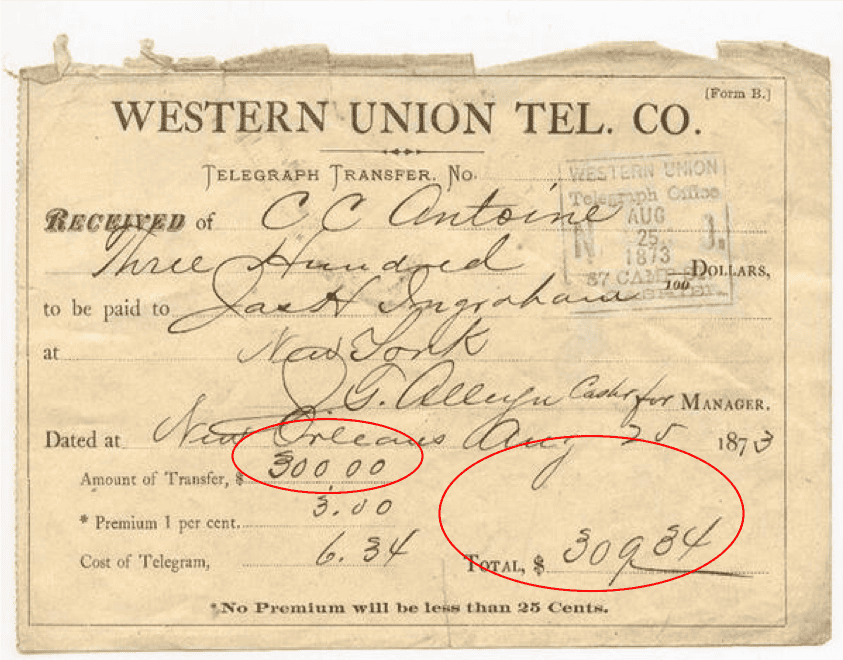 [Form B.]
WESTERN UNION TEL. CO.
TELEGRAPH TRANSFER, No.
WESTERN UNION
Telegraph Office
AUG
25
1873
RECEIVED of C C Antoine
Three Hundred 100 DOLLARS,
to be paid to Jas H Ingraham
at New York
J G. Alleyn Cashr for MANAGER.
Dated at New Orleans Aug 25 1873
Amount of Transfer, $ 300.00
* Premium 1 per cent. 3.00
Cost of Telegram, 6.34 TOTAL, $ 309 34
*No Premium will be less than 25 Cents.